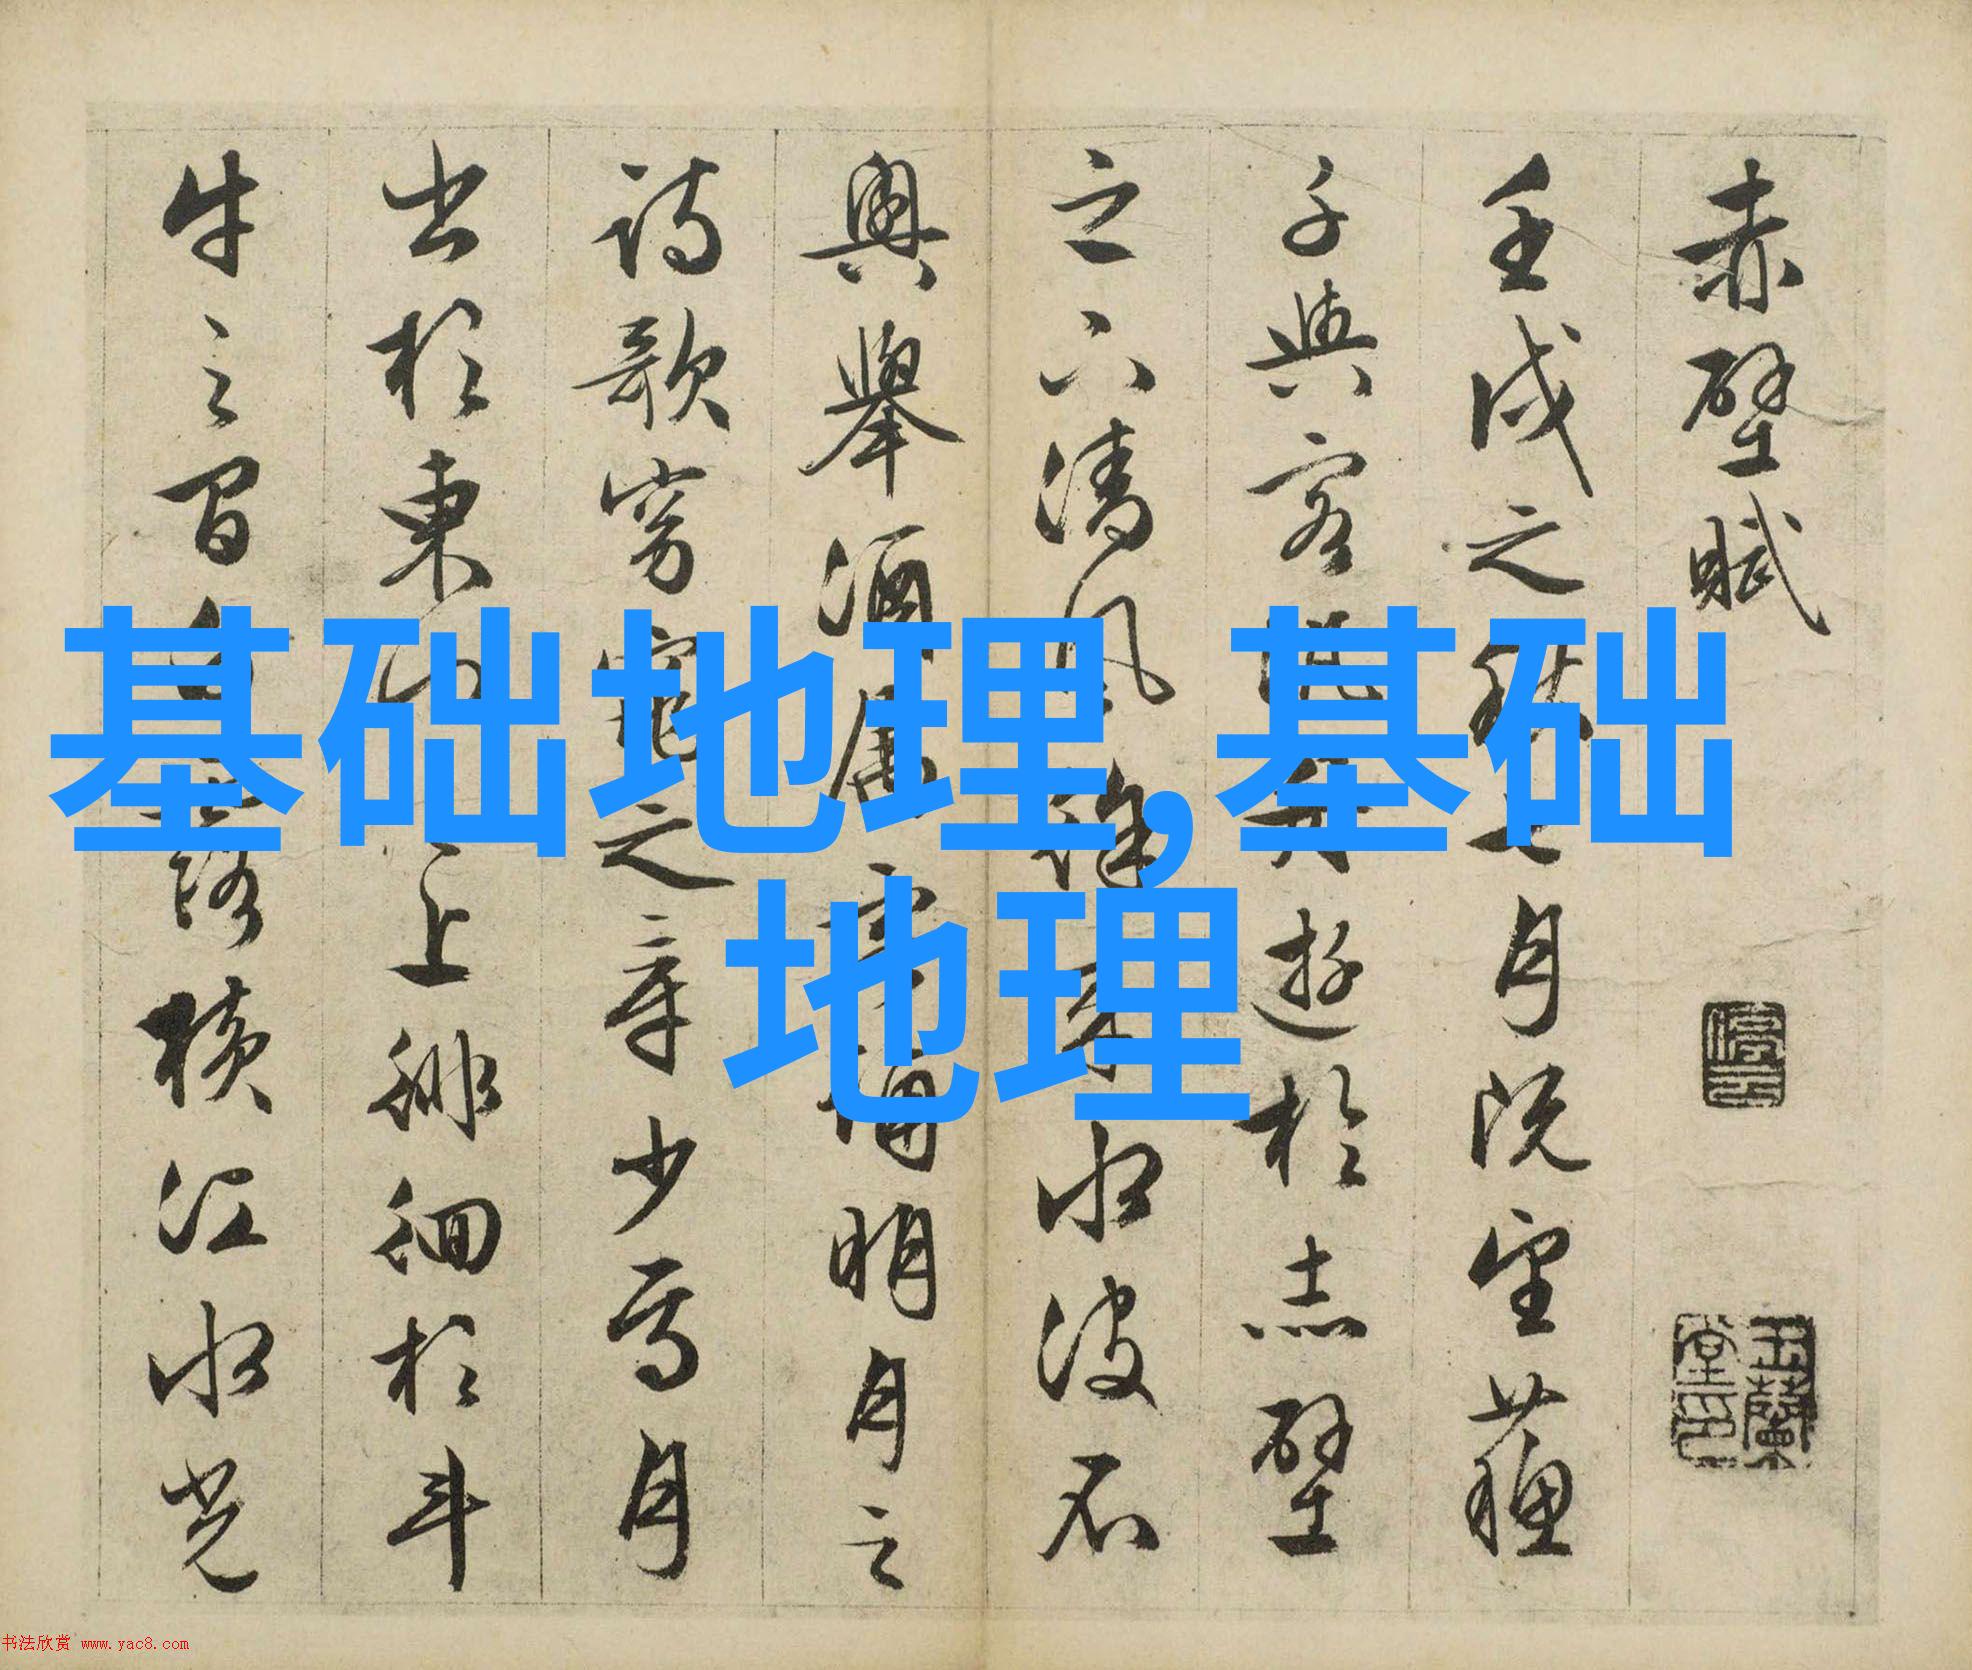 赤壁賦
停雲
玉蘭堂印
壬戌之秋七月既望蘇
子與客泛舟遊於赤壁
之下清風徐來水波不
興舉酒屬客誦明月之
詩歌窈窕之章少焉月
出於東山之上徘徊於斗
牛之間白露橫江水光
基础地理,基础
地理
书法欣赏 www.yac8.com